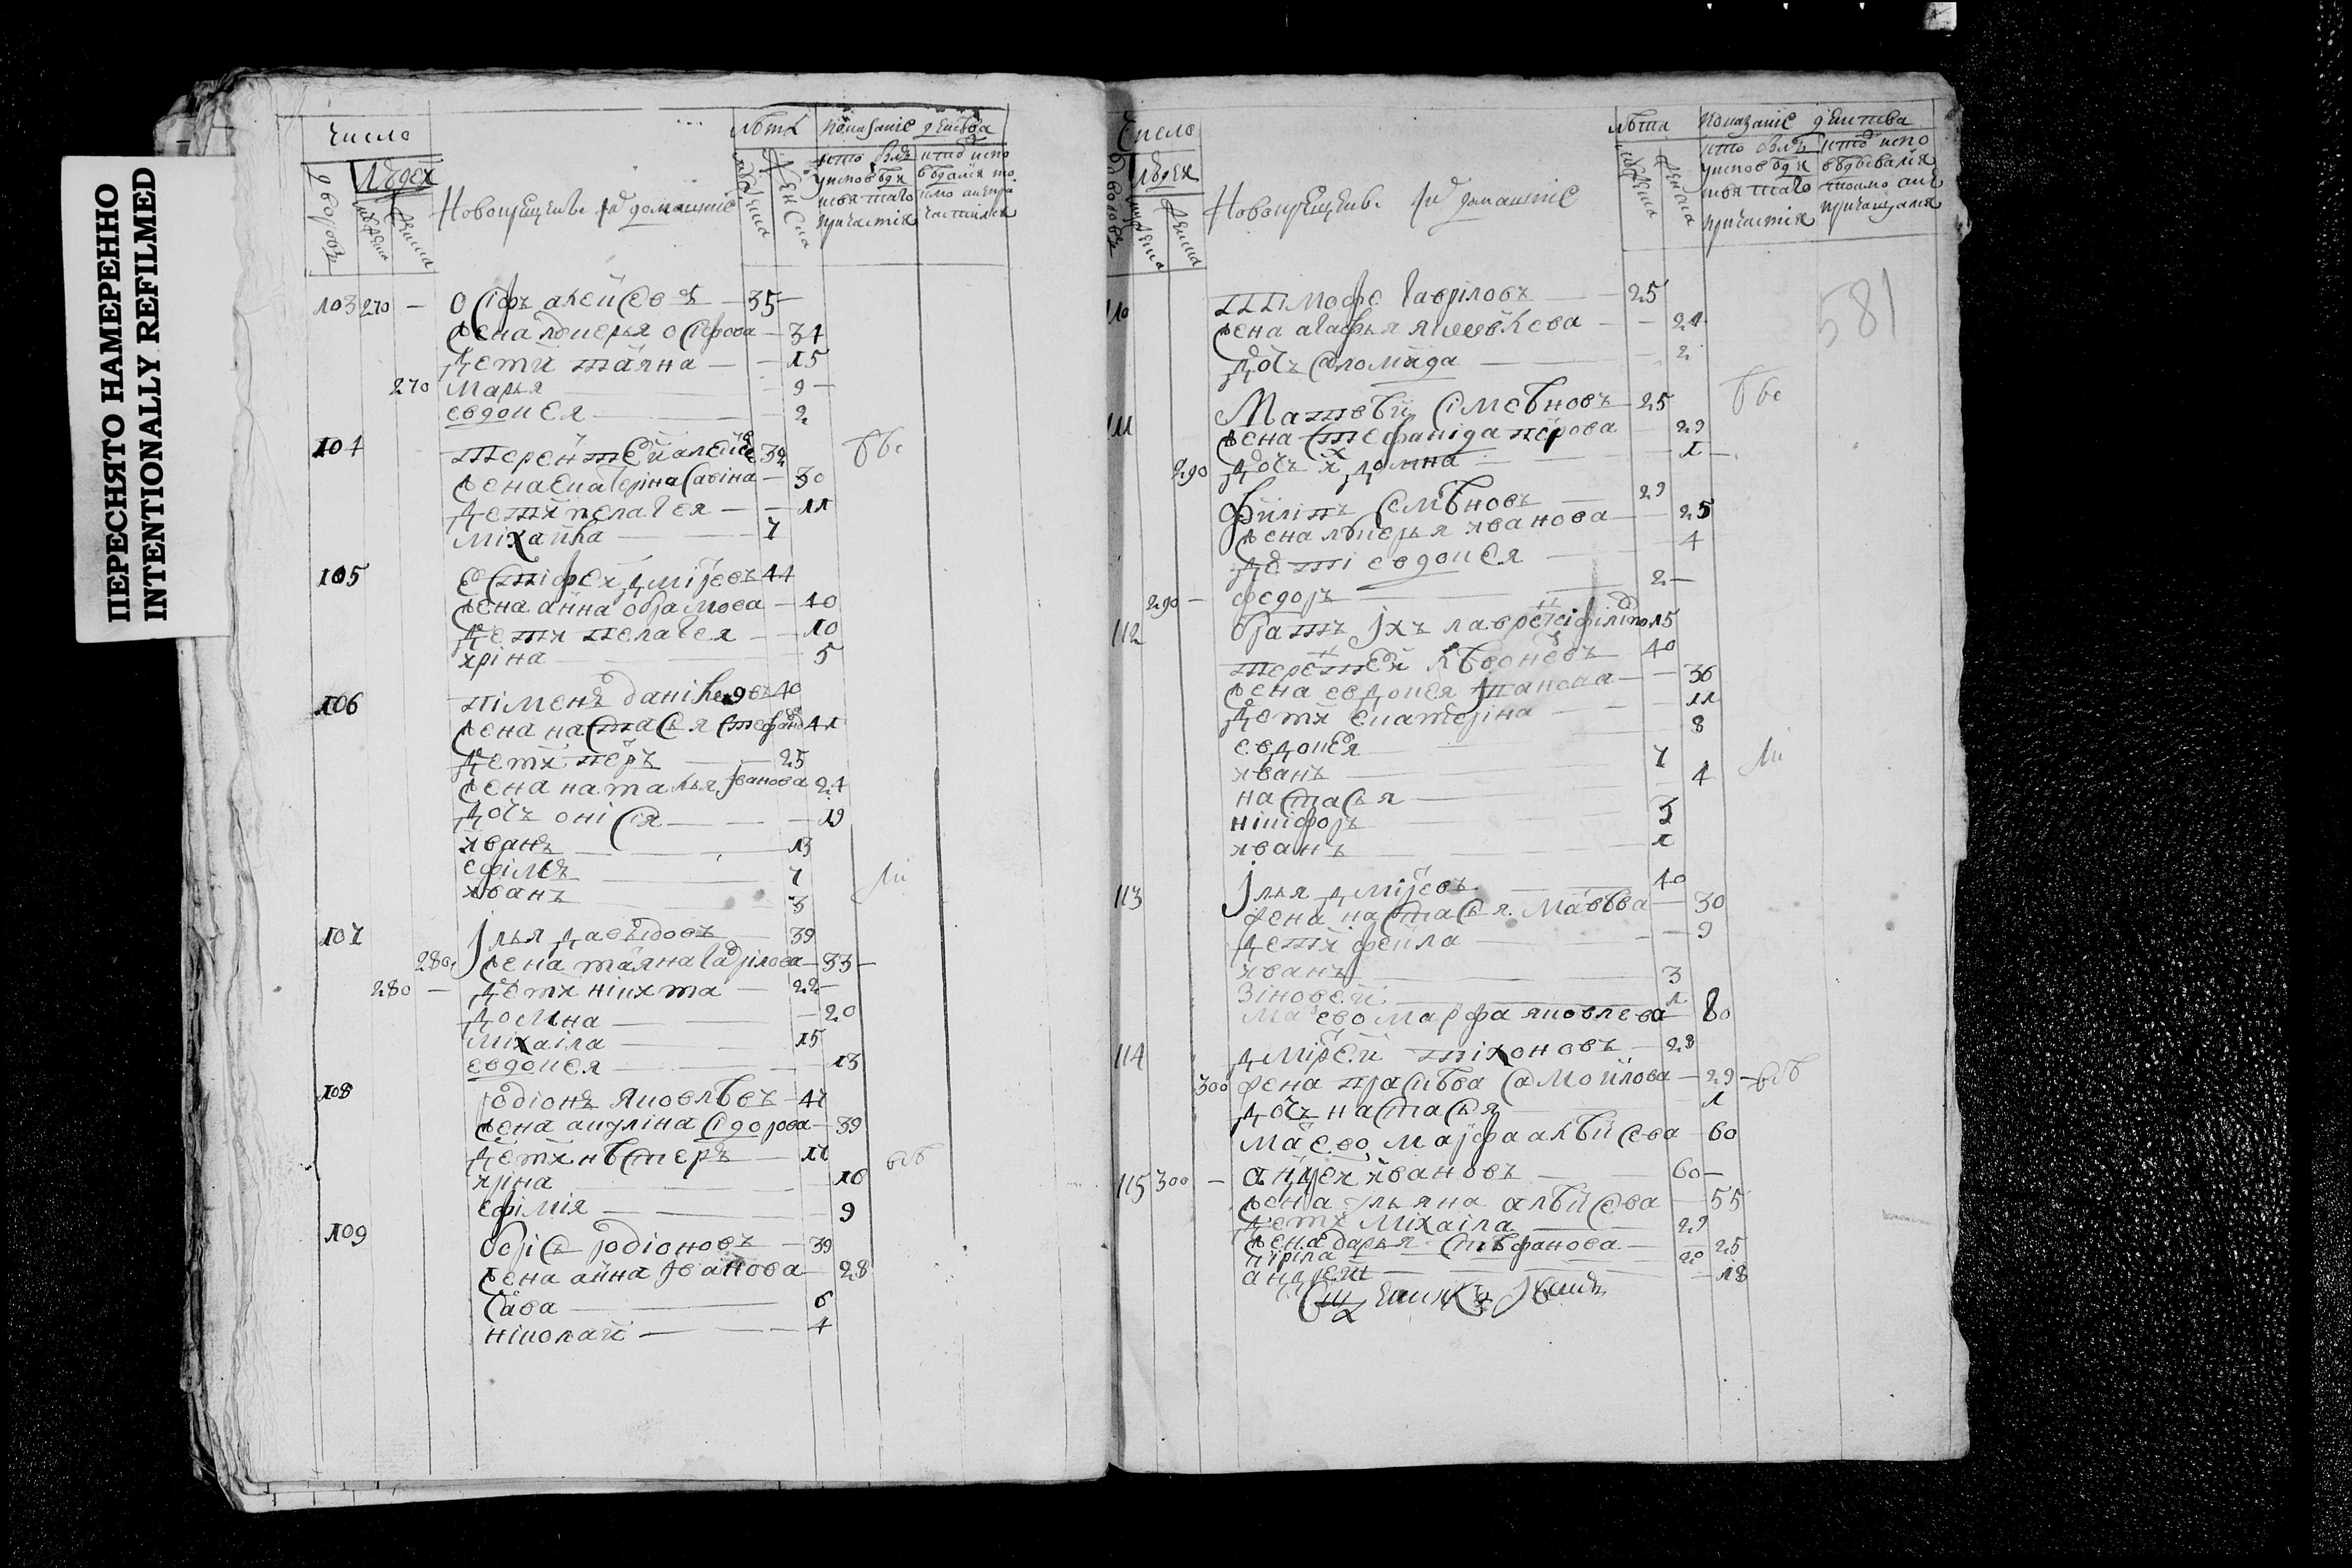 ПЕРЕСНЯТО НАМЕРЕННО
INTENTIONALLY REFILMED
число
дворовъ
людех
мужеска
женска
Новокрещены и домашние
лѣта
мужеска
женска
показание действа
кто былъ у исповѣди и святаго причастия
кто исповѣдался токмо а не причастился
103 270 — осипъ алеѯеевъ — 35 —
жена лукерья осипова — 34
дети татяна — 15
270 марья 9 —
евдокея 2
104 терентей 32
жена екатерина савина — 30
дети пелагея — 11
михаила 7
105 естифеи дмитреевъ 44
жена анна обрамова — 40
дети пелагея — 10
ирина 5
106 пименъ даниловъ 40
жена настасья стефанова 41
дети петръ 25
жена наталья иванова 24
дочь онисия — 19
иванъ 13
ефимъ 7
иванъ 3
107 илья давыдовъ 39
280 жена татяна гаврилова — 33 —
280 — дети никита — 22 —
домна — 20
михаила 15
евдокея — 13
108 родионъ яковлѣвъ — 47
жена акулина сидорова — 39
дети нѣстеръ — 17
ирина 16
ефимия 9
109 борисъ родионовъ — 39
жена анна иванова — 28
сава 6
николаи — 4
число
дворовъ
людех
мужеска
женска
Новокрещены и домашние
лѣта
мужеска
женска
показание действа
кто былъ у исповѣди и святаго причастия
кто исповѣдовался токмо а не причащался
581
110 тимофе гавриловъ — 25
жена агафья яковлева — 24
дочь соломида 2
111 матвѣй симеѣновъ — 25
жена стефанида петрова — 29
290 дочь их домна 1 —
филипъ семѣновъ — 29
жена лукерья иванова — 25
дети евдокея 4
290 — федоръ 2 —
112 братъ ихъ лаврентеи филипо 15
терентеи 40
жена евдокея — 36
дети екатерина — 11
евдокея 8
иванъ 7
настасья 4
никифоръ 3
иванъ 1
113 илья дмитреевъ 40
жена настасья матвѣва — 30
дети фекла — 9
иванъ 3
зиновеи 1
мать ево марфа яковлева 80
114 дмитреи тихоновъ — 28
300 жена прасковя самоилова — 29 —
дочь настасья 1
мать ево марфа алѣксева — 60
115 300 — андреи ивановъ — 60 —
жена ульяна алѣксева — 55
дети михаила — 29
жена дарья стѣфанова — 25
кирила 20
андреи — 18